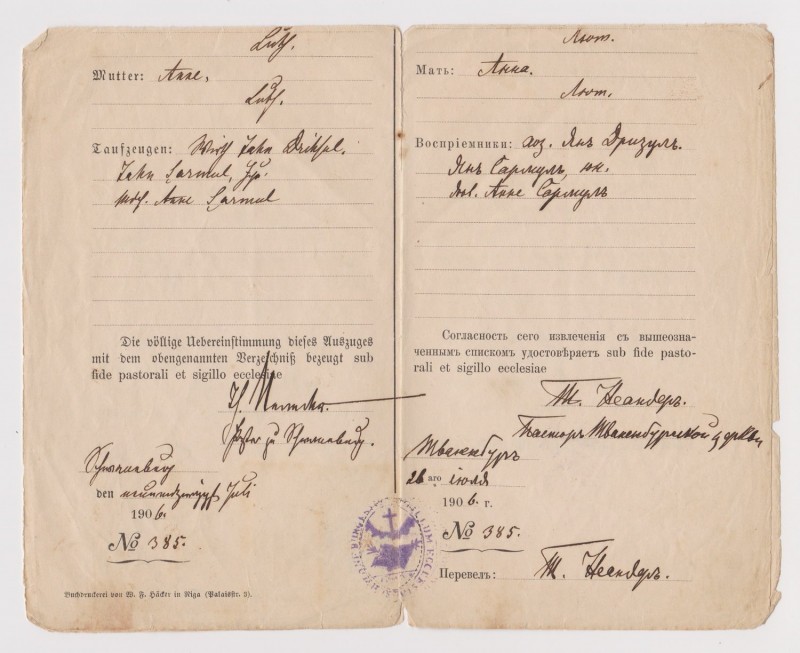 Luth.
Mutter: Anne,
Luth.
Taufzeugen: Wirth Jahn Driksul.
Jahn Sarmul, jun.
Mdch. Anne Sarmul
Die völlige Uebereinstimmung dieses Auszuges
mit dem obengenannten Verzeichniß bezeugt sub
fide pastorali et sigillo ecclesiae
Th. Neander.
Pastor zu Schwaneburg.
Schwaneburg
den Juli
1906.
No 385.
Buchdruckerei von W. F. Häcker in Riga (Palaisstr. 3).
Лют.
Мать: Анна.
Лют.
Воспріемники: хоз. Янъ Дризулъ.
Янъ Сармулъ, юн.
Анне Сармулъ
Согласность сего извлеченія съ вышеозна-
ченнымъ спискомъ удостовѣряетъ sub fide pasto-
rali et sigillo ecclesiae
Т. Неандеръ.
Пасторъ Шваненбургской церкви
Шваненбургъ
аго іюля
1906 г.
No 385.
Перевелъ: Т. Неандеръ.